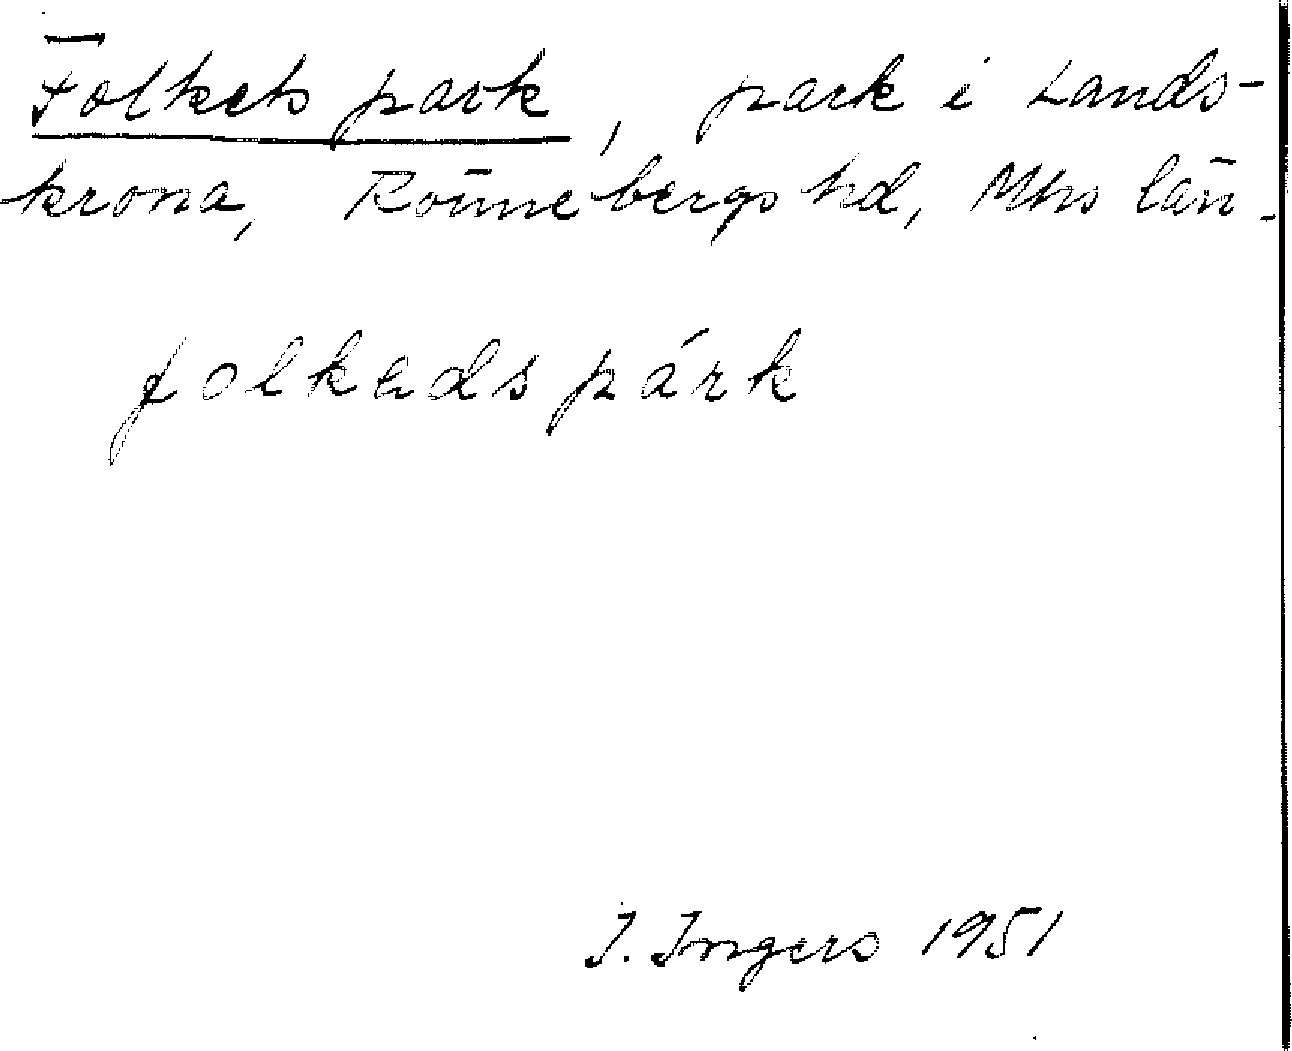 Folkets park, park i Lands-
krona, Rönnebergs hd, Mhs län.
folkadspárk
I. Ingers 1951